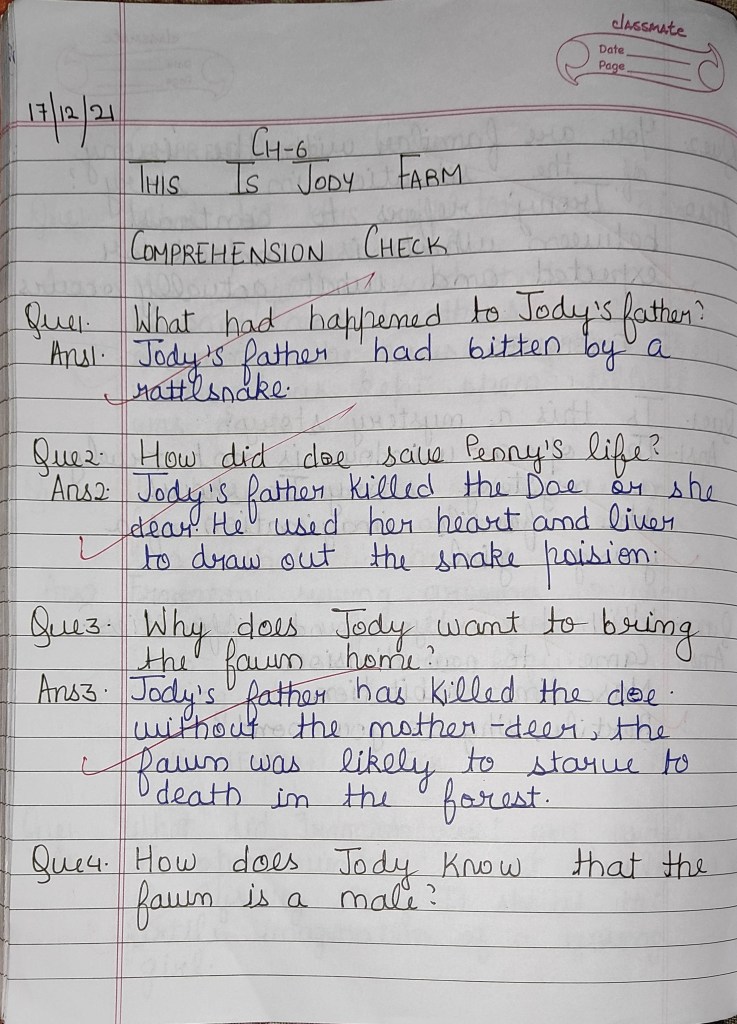 classmate
Date
Page
17/12/21
CH-6
THIS IS JODY FARM
COMPREHENSION CHECK
Que1. What had happened to Jody's father?
Ans1. Jody's father had bitten by a
rattlsnake.
Que2. How did doe save Penny's life?
Ans2. Jody's father killed the Doe or she
dear. He used her heart and liver
to draw out the snake poision.
Que3. Why does Jody want to bring
the fawn home?
Ans3. Jody's father has killed the doe.
without the mother-deer, the
fawn was likely to starve to
death in the forest.
Que4. How does Jody know that the
fawn is a male?